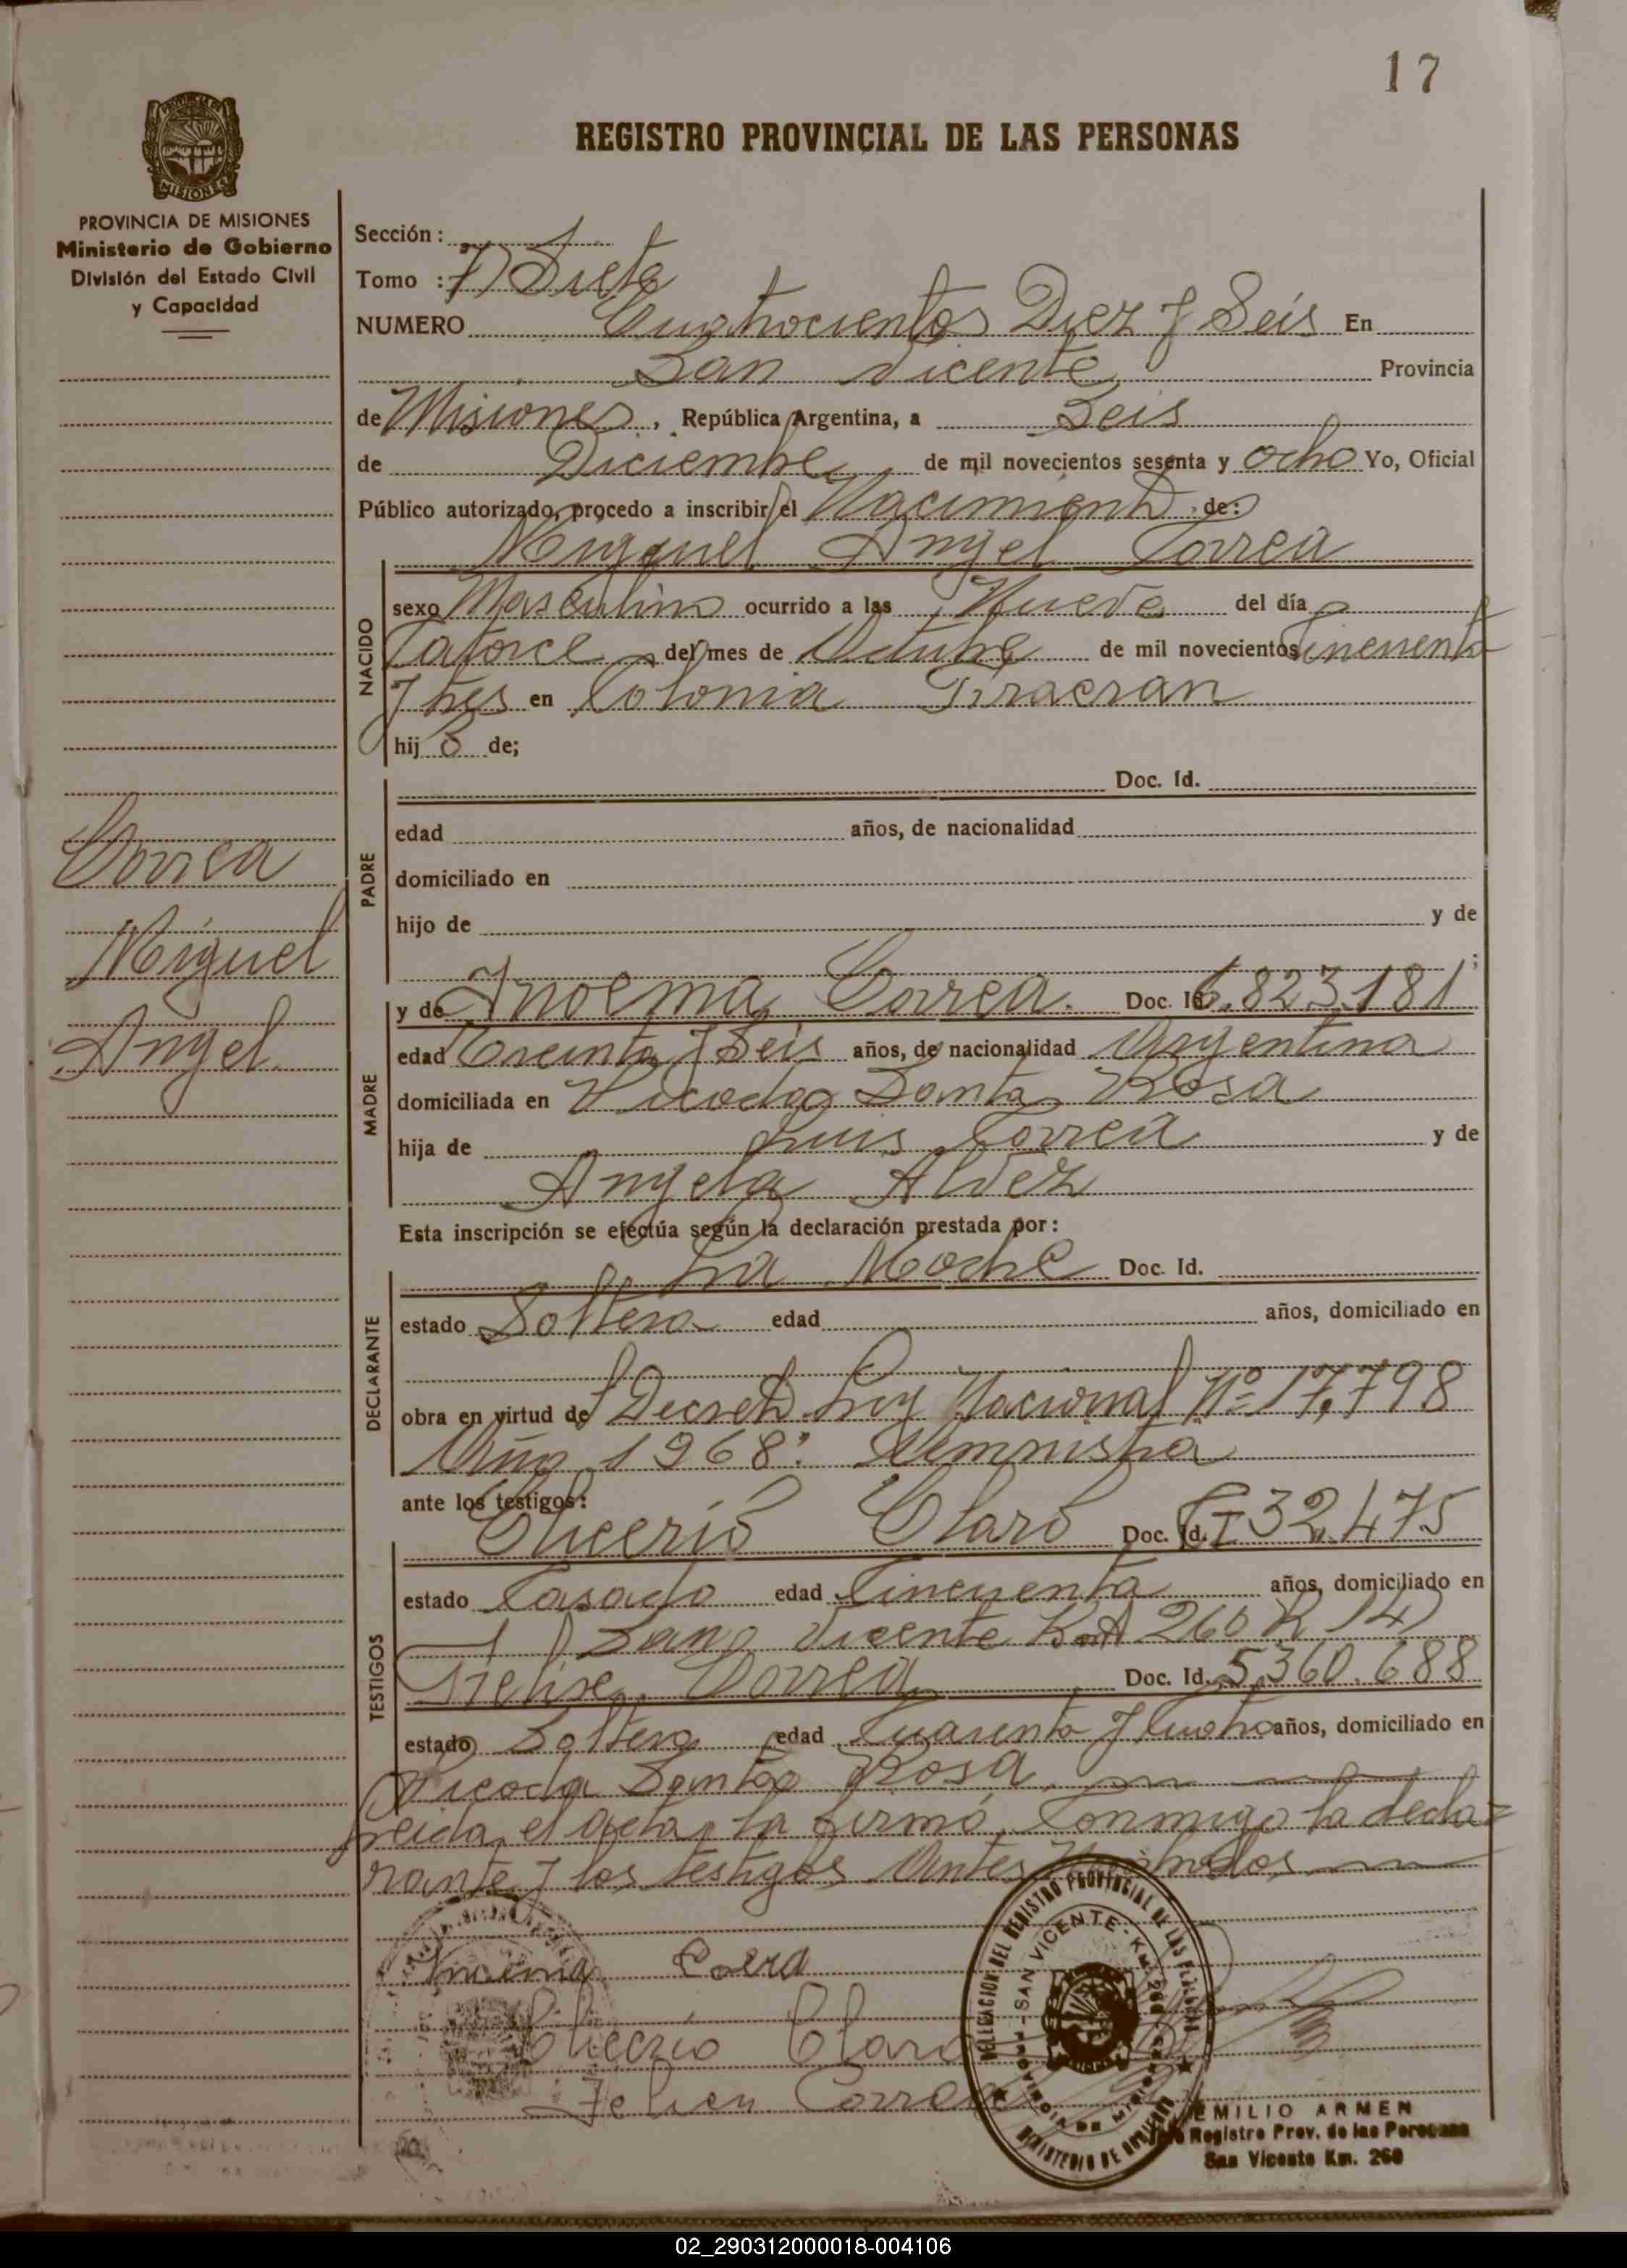 17
REGISTRO PROVINCIAL DE LAS PERSONAS
PROVINCIA DE MISIONES
Ministerio de Gobierno
División del Estado Civil
y Capacidad
Sección :
Tomo : 7) Siete
NUMERO Cuatrocientos Diez y Seis En
San Vicente Provincia
de Misiones, República Argentina, a Seis
de Diciembre de mil novecientos sesenta y ocho Yo, Oficial
Público autorizado, procedo a inscribir el Nacimiento de:
Miguel Angel Correa
NACIDO
sexo Masculino ocurrido a las Nueve del día
Catorce del mes de Octubre de mil novecientos Cincuenta
y tres en Colonia Pracran
hij o de;
PADRE
Doc. Id.
edad años, de nacionalidad
domiciliado en
hijo de y de
;
Correa
Miguel
Angel
MADRE
y de Inoema Correa. Doc. Id. 6.823.181
edad Treinta y Seis años, de nacionalidad Argentina
domiciliada en Picada Santa Rosa
hija de Luis Correa y de
Angela Alvez
Esta inscripción se efectúa según la declaración prestada por:
DECLARANTE
La Madre Doc. Id.
estado Soltera edad años, domiciliado en
obra en virtud de Decreto Ley Nacional Nº 17.798
Año 1968: Amnistia
ante los testigos:
TESTIGOS
Glicerio Claro Doc. Id. CI 32.475
estado Casado edad Cincuenta años, domiciliado en
San Vicente Km 260 R 14
Correa Doc. Id. 5.360.688
estado Soltero edad Cuarenta y Cuatro años, domiciliado en
Picada Santa Rosa
Leida el acta, la firmó, Conmigo la decla=
rante y los testigos Antes Nombrados
Correa
Glicerio Claro
Correa
DELEGACION DEL REGISTRO PROVINCIAL DE LAS PERSONAS
SAN VICENTE - Km. 260
PROVINCIA DE MISIONES
MINISTERIO DE GOBIERNO
EMILIO ARMEN
Registro Prov. de las Personas
San Vicente Km. 260
02_290312000018-004106